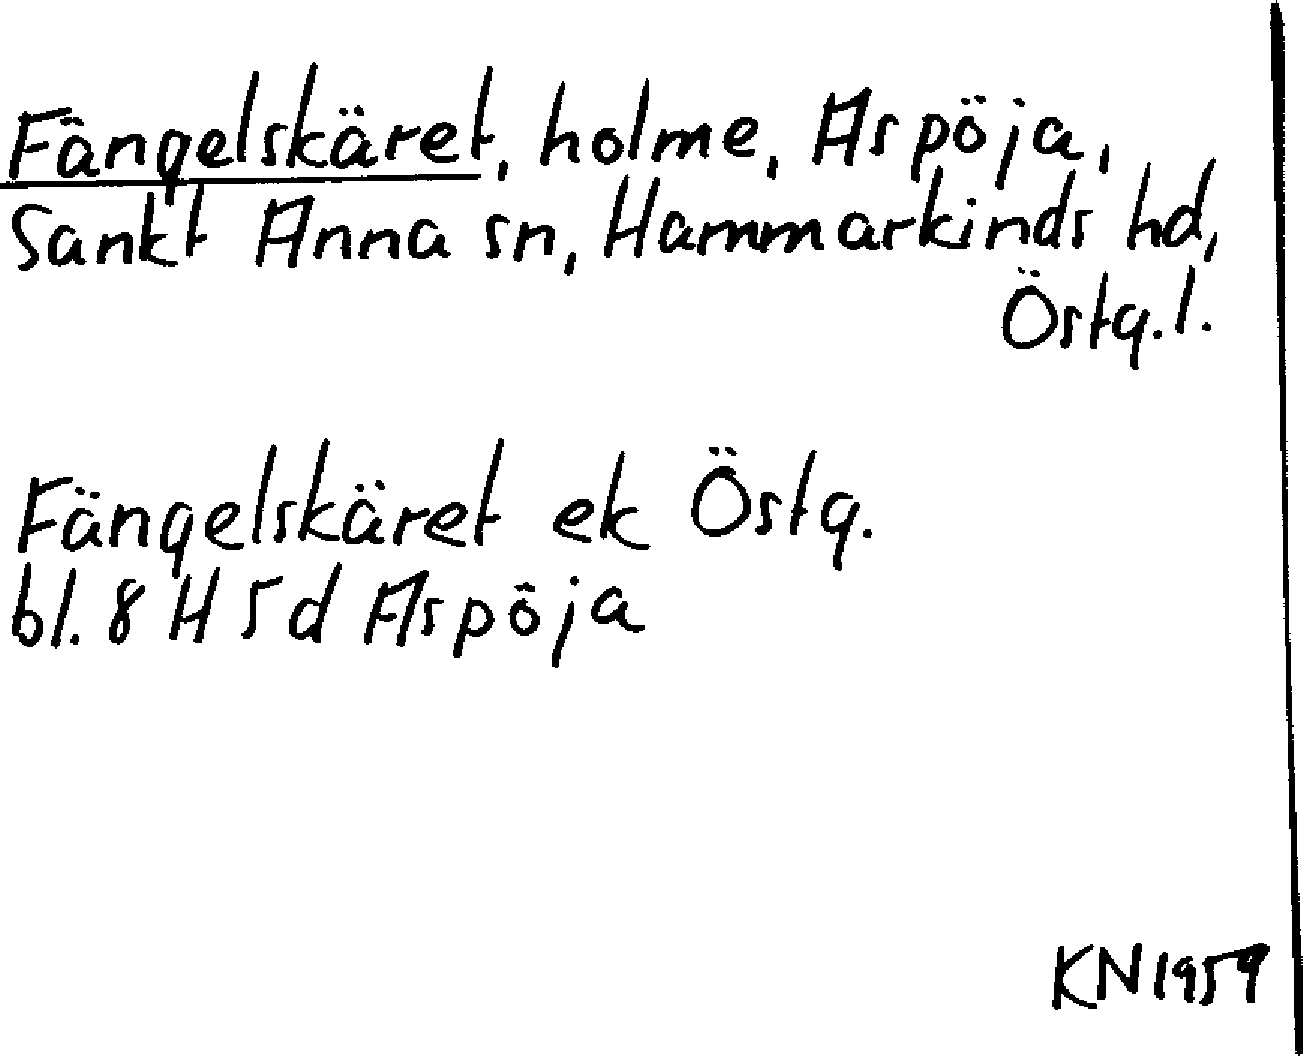 Fängelskäret, holme, Aspöja,
Sankt Anna sn, Hammarkinds hd,
Östg.l.
Fängelskäret ek Östg.
bl. 8 H 5d Aspöja
KN 1959